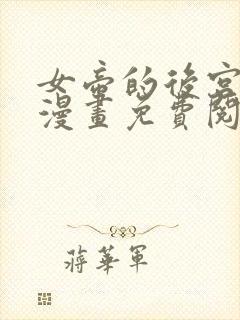 女帝的後宮
漫畫免費閱
蔣華軍